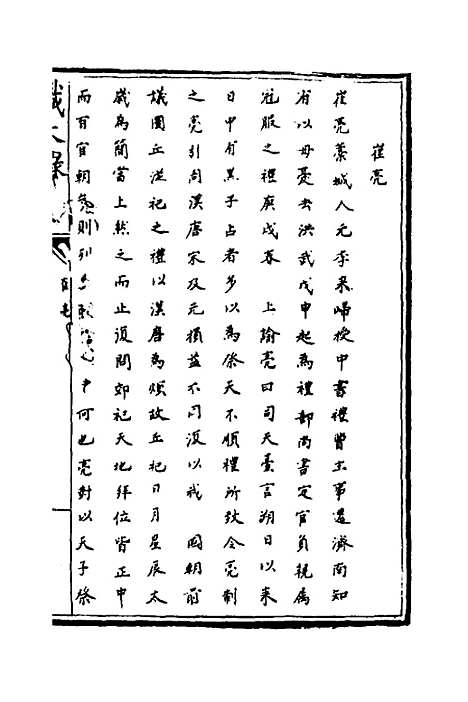 崔亮
崔亮藁城人元季来歸授中書禮曹主事遷濟南知
府以母憂去洪武戊申起為禮部尚書定官員親屬
冠服之禮庚戌春　上諭亮曰司天臺言朔日以来
日中有黒子占者多以為祭天不順禮所致今亮制
之亮引周漢唐宋及元損益不同復以我　國朝前
議圜丘從祀之禮以漢唐為煩故丘祀日月星辰太
歲為簡當上然之而止復問郊祀天地拜位皆正中
而百官朝參則列東西何也亮對以天子祭